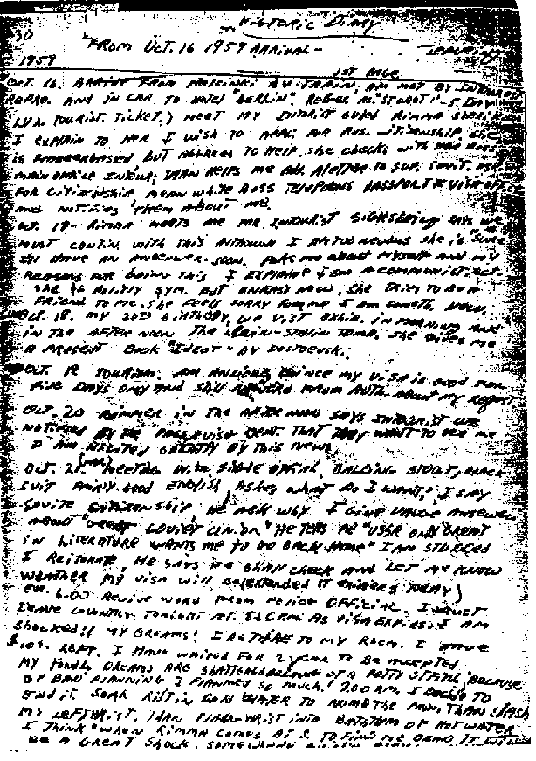 "HISTORIC DIARY
"FROM OCT. 16 1959 ARRIVAL -
1959
1ST PAGE
OCT. 16. ARRIVE FROM HELSINKI BY TRAIN, AM MET BY INTOURIST
REPRE. AND IN CAR TO HOTEL "BERLIN". REGES. AS STUDENT 5 DAY
TOURIST TICKET.) MEET MY INTORIST GUIDE RIMMA
I EXPLAIN TO HER I WISH TO APPLI. FOR RUS. CITIZENSHIP. SHE
IS BUT AGGREES TO HELP. SHE CHECKS WITH HER
MAIN OFFICE INTOUR; THAN HELPS ME ADD. A LETTER TO SUP. SOVIT. ASKING
FOR CITIZENSHIP, MEAN WHILE BOSS TELEPHONS PASSPORT & VISA OFFICE
AND NOTIFIES THEM ABOUT ME.
OCT. 17 - RIMMA MEETS ME FOR INTOURIST SIGHTSEEING SAYS WE
MUST CONTIN. WITH THIS ALTHOUGH I AM TOO NERVOUS SHE IS "SURE"
I'LL HAVE AN ANSWER SOON. ASKS ME ABOUT MYSELF AND MY
REASONS FOR DOING THIS I EXPLAINE I AM A COMMUNIST, ECT.
SHE IS POLITLY SYM. BUT UNEASY NOW. SHE TRIES TO BE A
FRIEND TO ME. SHE FEELS SORRY FOR ME I AM SOMETH. NEW.
OCT. 18. MY 20TH BIRTHDAY, WE VISIT EXHIB. IN MORNING AND
IN THE AFTER NOON THE LENIN-STALIN TOMB. SHE GIVES ME
A PRESENT BOOK "IDEOT" BY DOSTOEVSKI.
OCT. 19 TOURISM. AM ANXIOUS SINCE MY VISA IS GOOD FOR
FIVE DAYS ONLY AND STILL NO WORD FROM AUTH. ABOUT MY REQEST
OCT. 20 RIMMER IN THE AFTER NOON SAYS INTOURIST WAS
NOTIFIED BY THE PASS & VISA DEPT. THAT THEY WANT TO SEE ME
I AM EXCITED GREATLY BY THIS NEWS.
OCT. 21. MEETING WITH SINGLE OFFICIAL, BALDING STOUT, BLACK
SUIT FAIRLY GOOD ENGLISH, ASKES WHAT DO I WANT?, I SAY
SOVITE CITIZENSHIP, HE ASK WHY I GIVE VAUGE ANSWERS
ABOUT "GREAT SOVIET UNION" HE TELLS ME "USSR ONLY GREAT
IN LITERATURE WANTS ME TO GO BACK HOME" I AM STUNNED
I REITERATE, HE SAYS HE SHALL CHECK AND LET ME KNOW
WEATHER MY VISA WILL BE EXTENDED IT EXIPIERS TODAY)
EVE. 6.00 RECIVE WORD FROM POLICE OFFICIAL. I MUST
LEAVE COUNTRY TONIGHT AT 8.00 P.M. AS VISA EXPIRS. I AM
SHOCKED!! MY DREAMS! I RETIRE TO MY ROOM. I HAVE
$100. LEFT. I HAVE WAITED FOR 2 YEAR TO BE ACCEPTED.
MY FONDES DREAMS ARE SHATTERED BECAUSE OF A PETTY OFFICIAL, BECAUSE
OF BAD PLANNING I PLANNED SO MUCH! 7.00 P.M. I DECIDE TO
END IT. SOAK RIST IN COLD WATER TO NUMB THE PAIN. THAN SLASH
MY LEFTWRIST. THAN PLAUG WRIST INTO BATHTUM OF HOT WATER.
I THINK "WHEN RIMMA COMES AT 8. TO FIND ME DEAD IT WILL
BE A GREAT SHOCK.